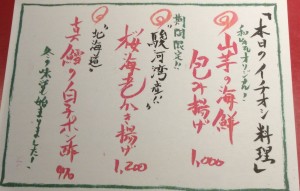 「本日のイチオシ料理」
和ぢオリジナル！
山芋の海鮮
包み揚げ
1,000
期間限定!!
"駿河湾産"
桜海老かき揚げ
1,200
"北海道"
真鱈の白子ポン酢
970
冬の味覚始まりました！